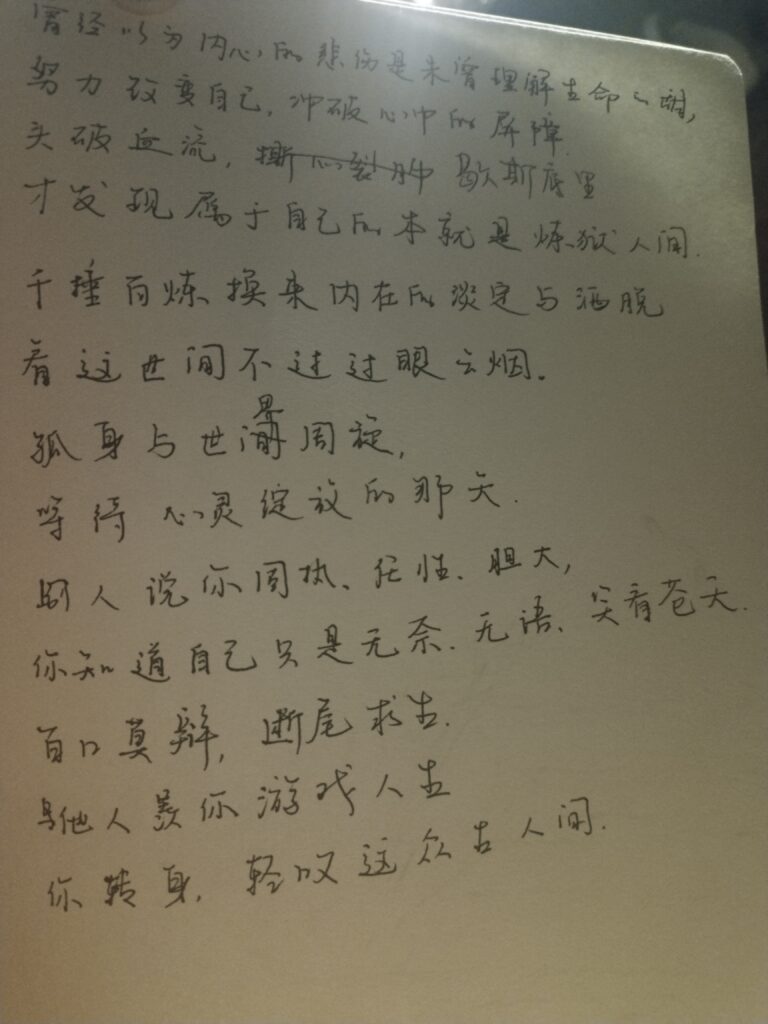 曾经以为内心的悲伤是未曾理解生命之甜,
努力改变自己,冲破心中的屏障.
头破血流,歇斯底里
才发现属于自己的本就是炼狱人间.
千捶百炼换来内在的淡定与洒脱
看这世间不过过眼云烟.
孤身与世界周旋,
等待心灵绽放的那天.
别人说你固执、任性、胆大,
你知道自己只是无奈.无语、笑看苍天.
百口莫辩,断尾求生.
他人羡你游戏人生
你转身,轻叹这众生人间.